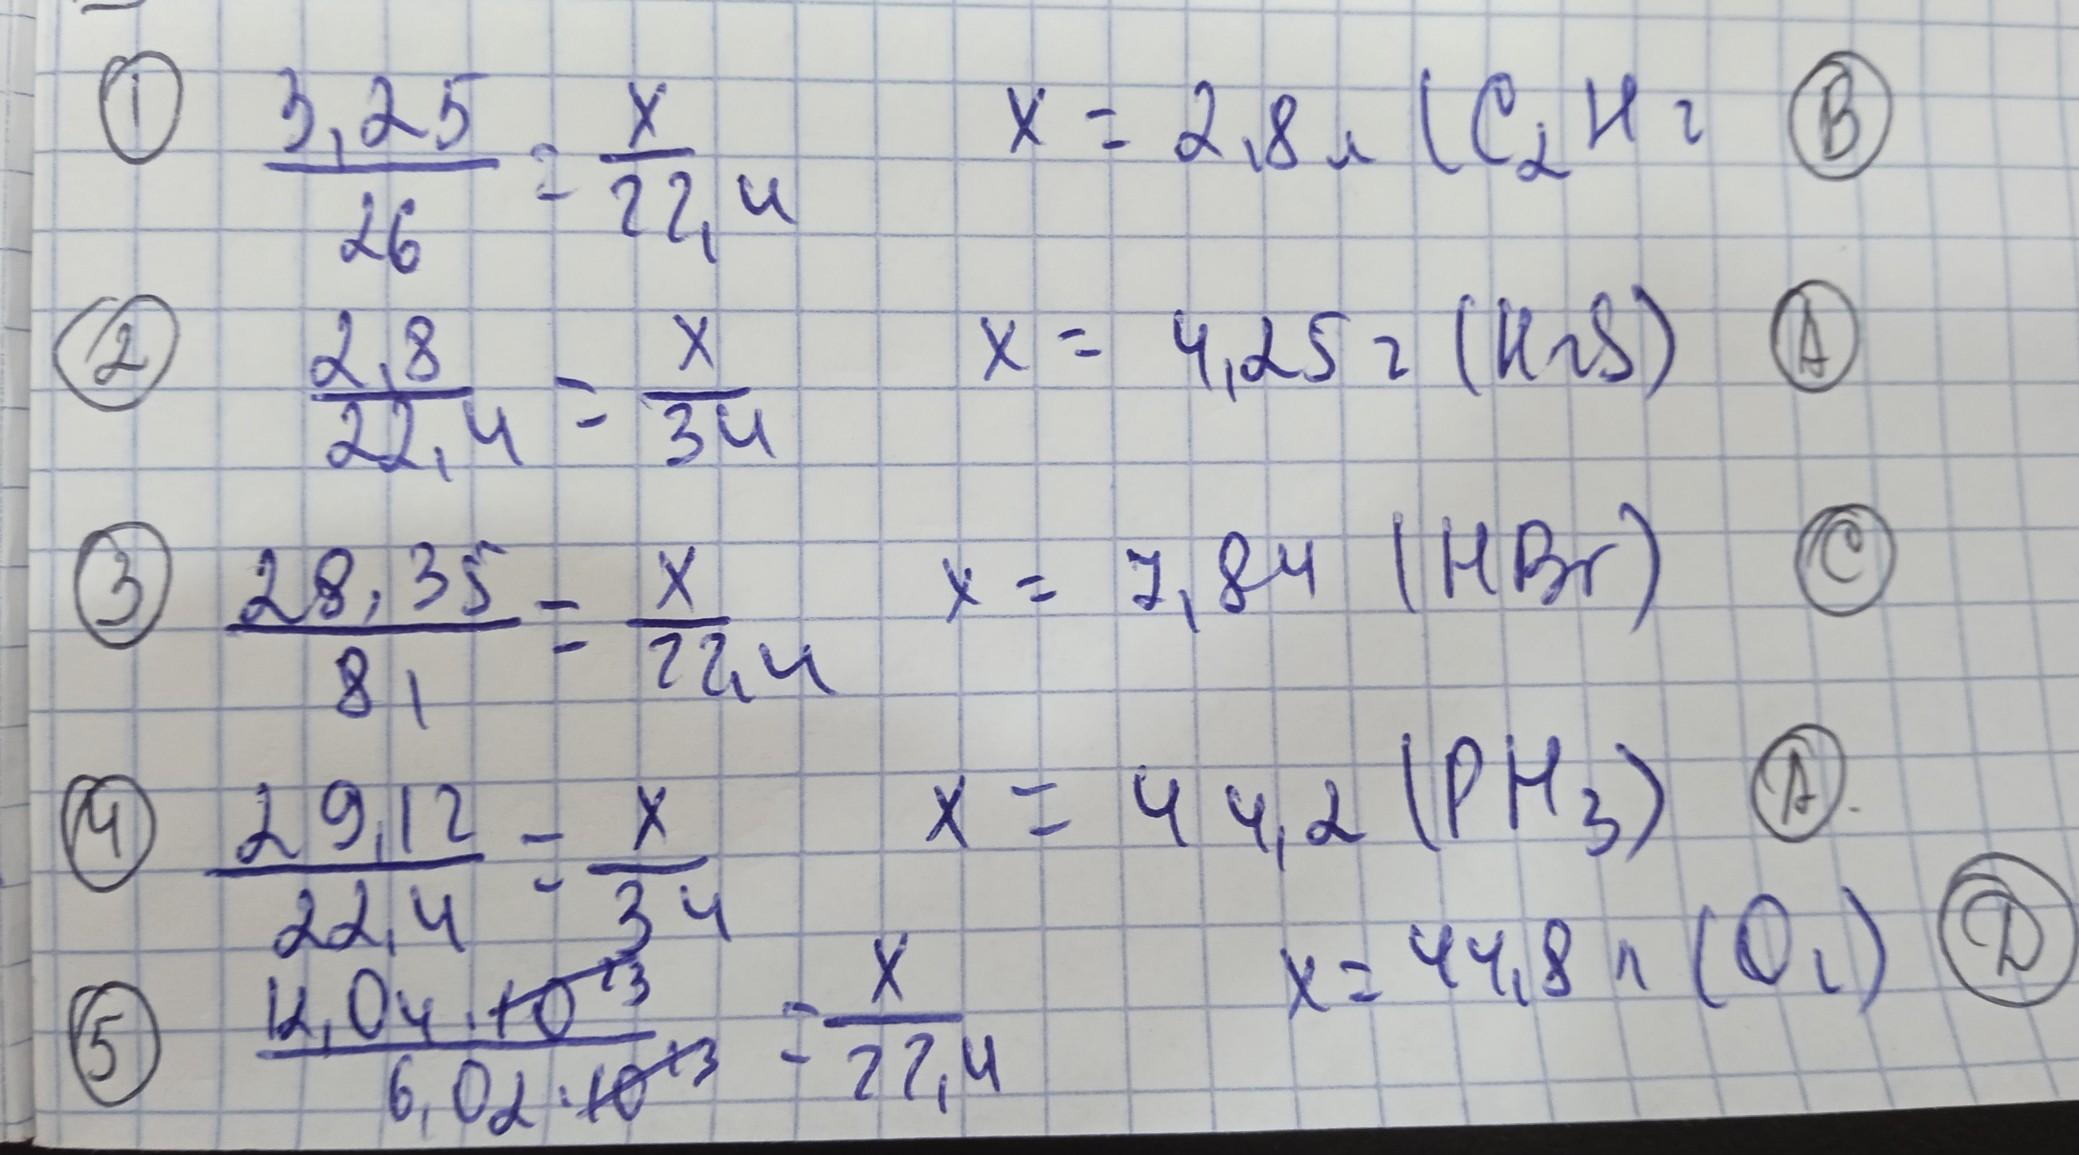 ① 3,25/26 = x/22,4 x = 2,8 л (C₂H₂ Ⓑ
② 2,8/22,4 = x/34 x = 4,25 г (H₂S) Ⓐ
③ 28,35/81 = x/22,4 x = 7,84 (HBr) Ⓒ
④ 29,12/22,4 = x/34 x = 44,2 (PH₃) Ⓐ
⑤ 12,04·10²³/6,02·10²³ = x/22,4 x = 44,8 л (O₂) Ⓓ